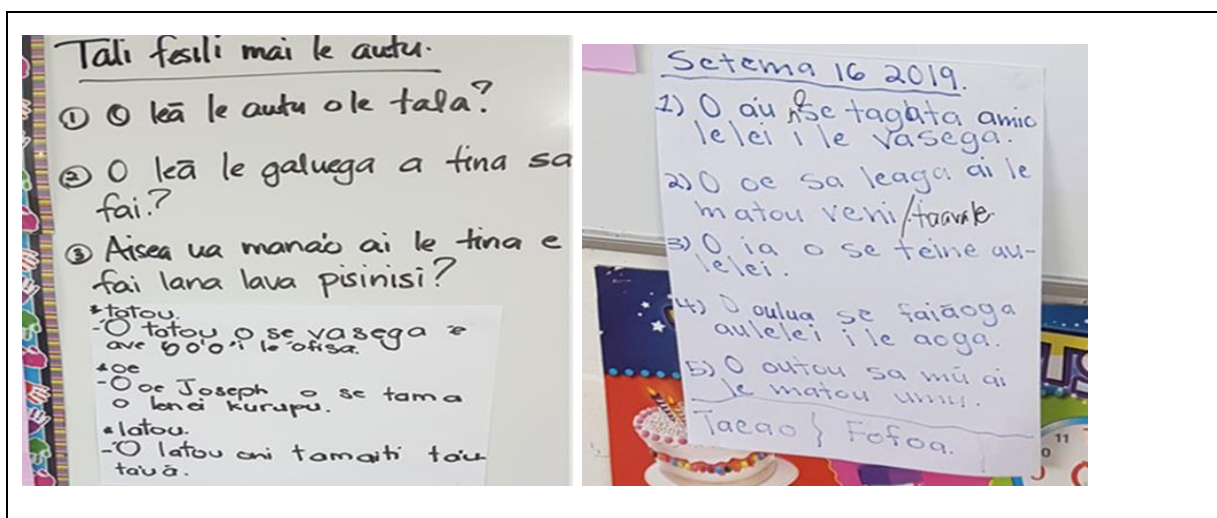 Tali fesili mai le autu.
① O leā le autu ole tala?
② O leā le galuega a tina sa
fai?
③ Aisea ua manao ai le tina e
fai lana lava pisinisi?
* totou.
-O totou o se vasega e
ave 50'o'i le ofisa.
* oe
-O oe Joseph o se tama
o lenei kurupu.
* latou.
-O latou oni tamaiti tau
tauā.
Setema 16 2019.
1) O au o se tagata amio
lelei i le vasega.
2) O oe sa leaga ai le
matou veni/taavale
3) O ia o se teine au-
lelei.
4) O oulua se faiāoga
aulelei i le aoga.
5) O outou sa mū ai
le matou umu.
Taeao } Fofoa.
11